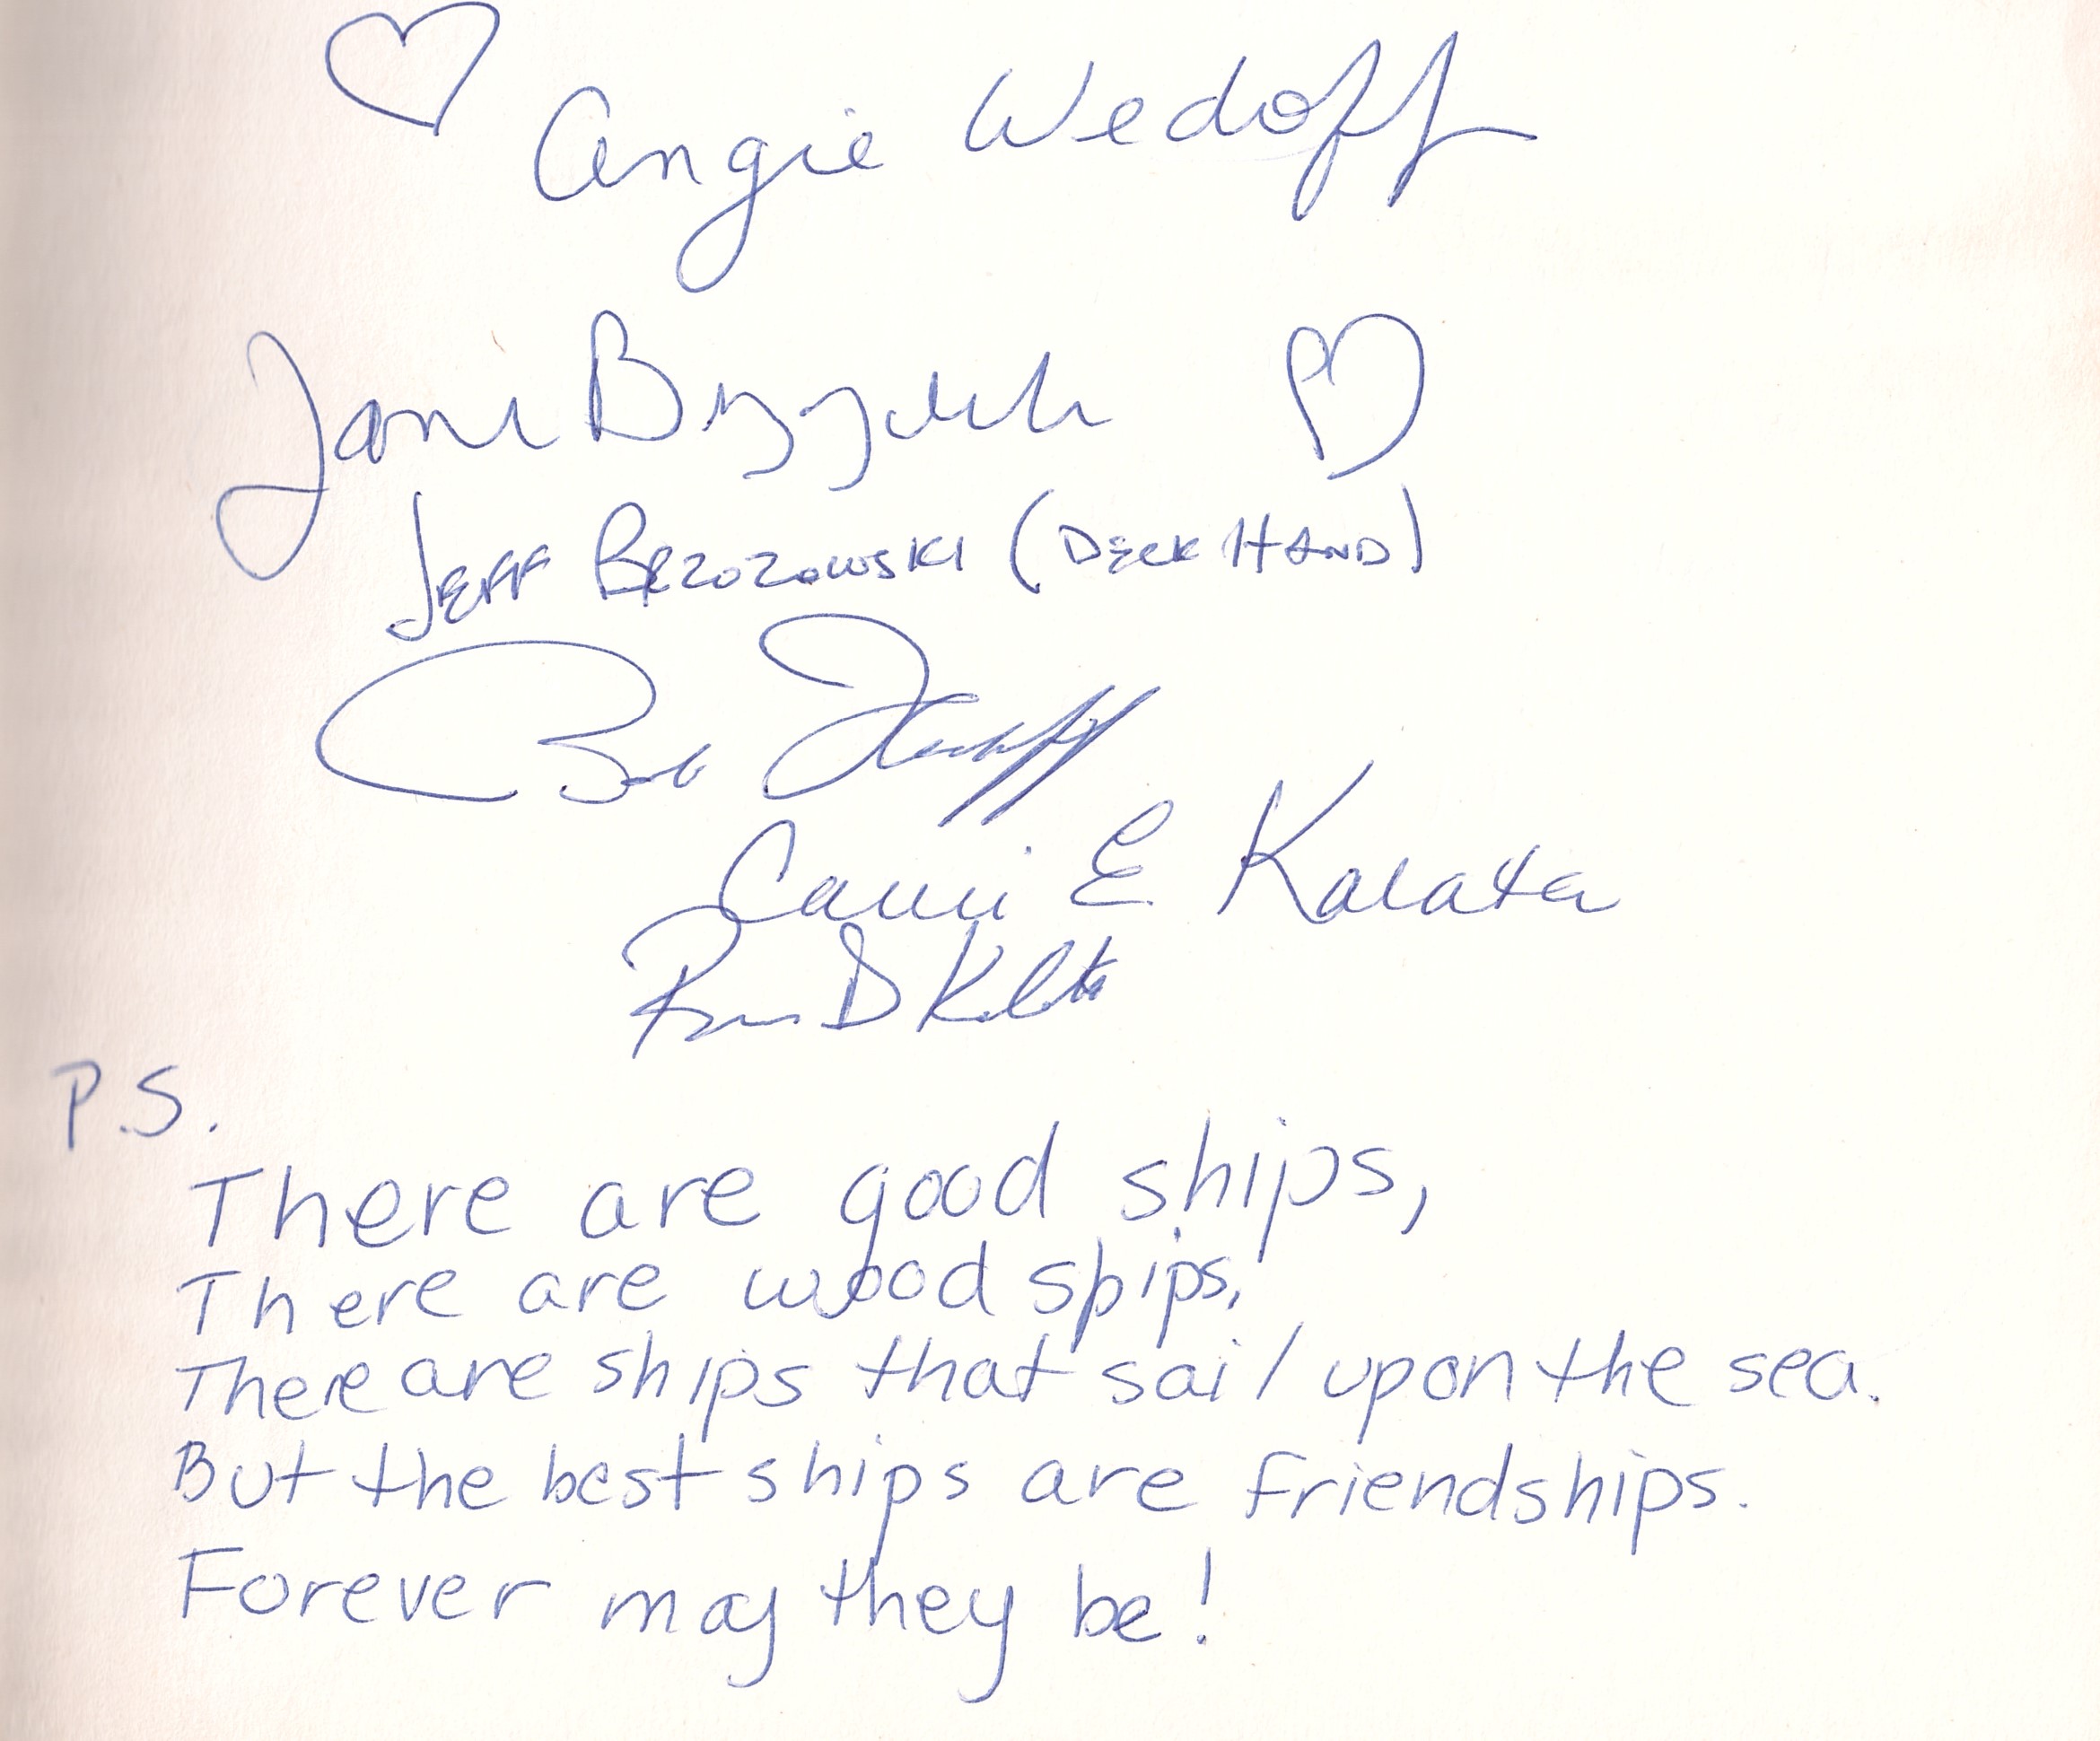 Angie Wedoff
Jeff Brzozowski (Deck Hand)
Bob
Cami E Kalata
D
P.S.
There are good ships,
There are wood spips,
There are ships that sail upon the sea.
But the best ships are friendships.
Forever may they be!